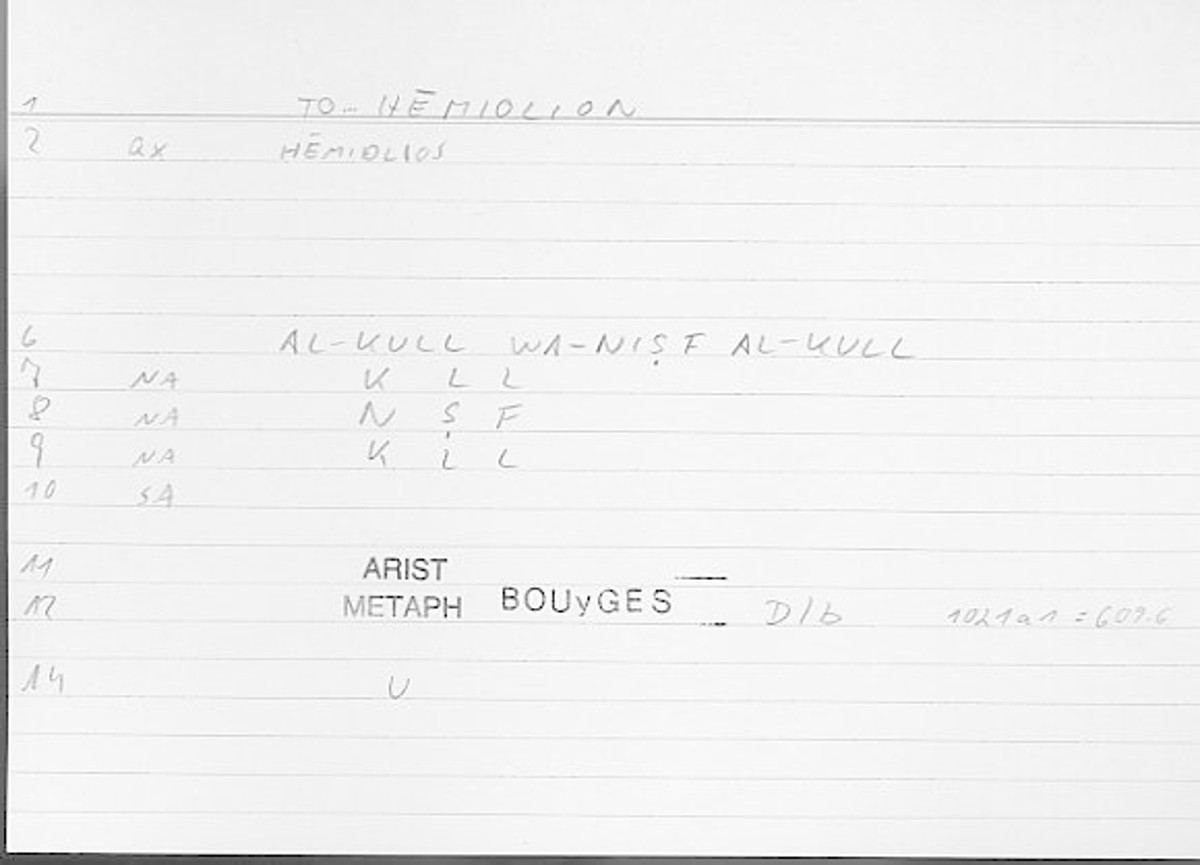 1 TO... HĒMIOLION
2 ax HĒMIOLIOS
6 AL-KULL WA-NIṢF AL-KULL
7 NA K L L
8 NA N Ṣ F
9 NA K L L
10 SA
11 ARIST
12 METAPH BOUyGES D/b 1021a1 = 609.6
14 U